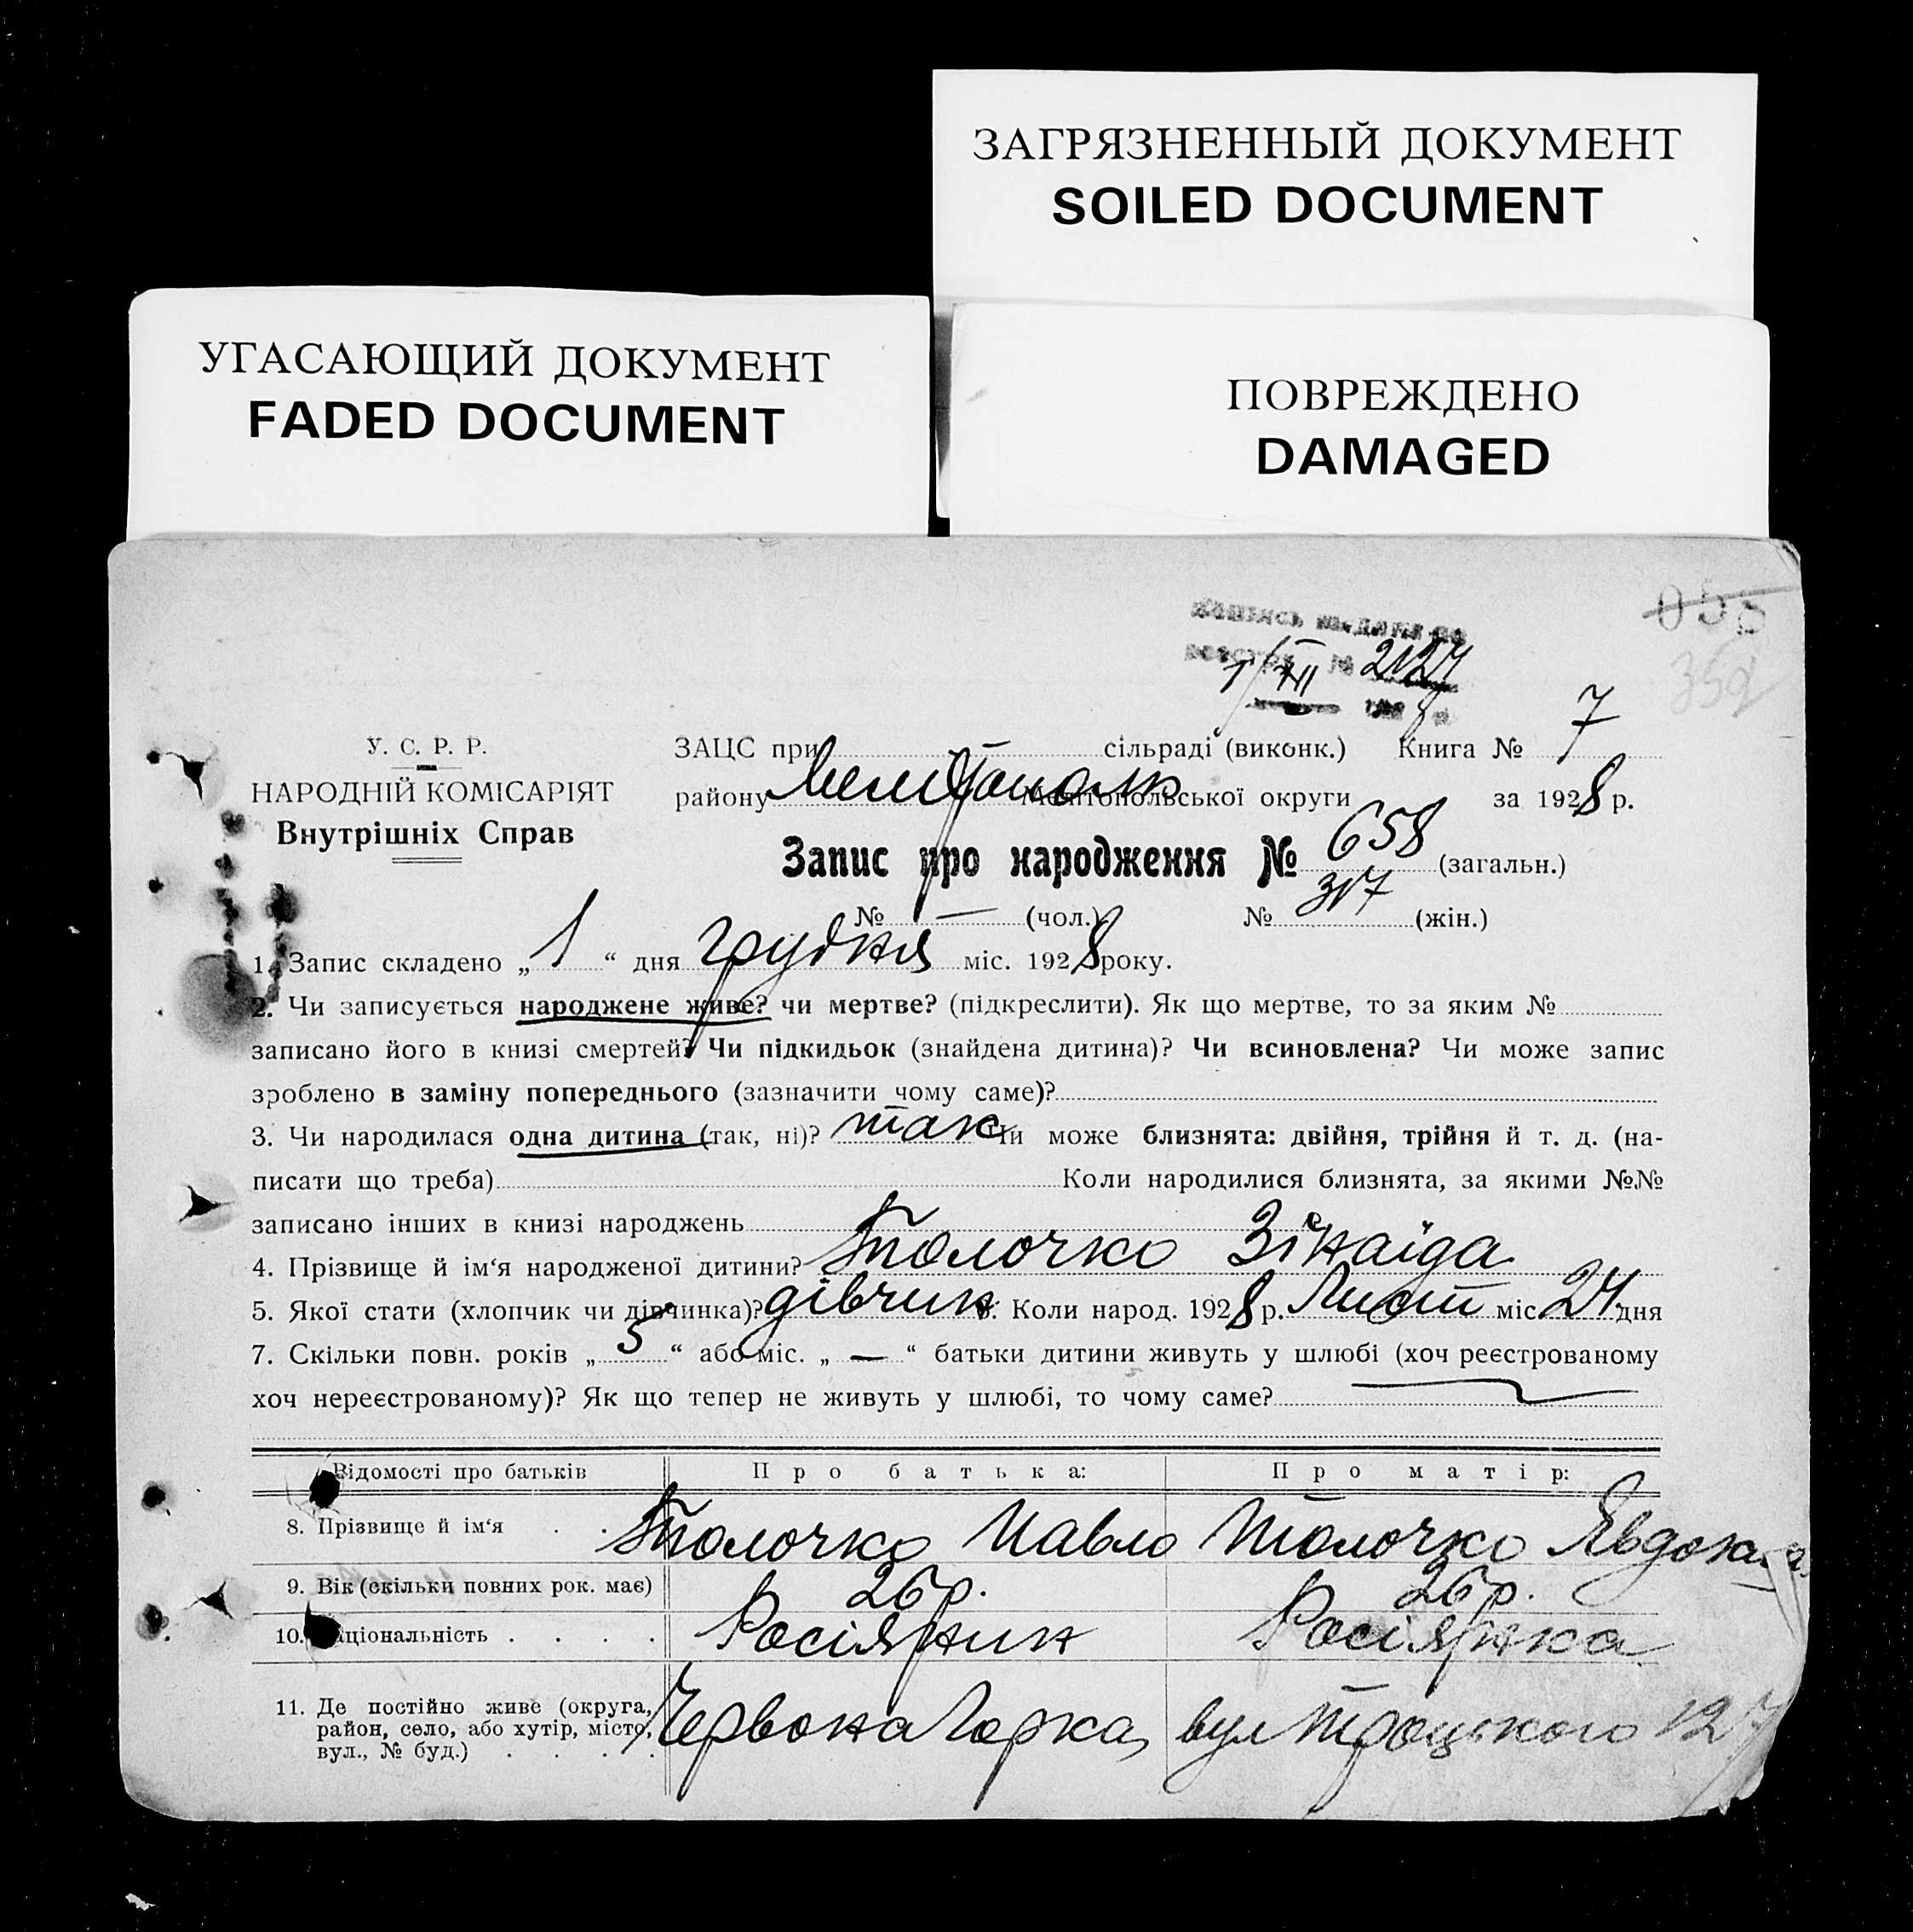 ЗАГРЯЗНЕННЫЙ ДОКУМЕНТ
SOILED DOCUMENT
УГАСАЮЩИЙ ДОКУМЕНТ
FADED DOCUMENT
ПОВРЕЖДЕНО
DAMAGED
352
1/XII 2127
У. С. Р. Р.
НАРОДНІЙ КОМІСАРІЯТ
Внутрішніх Справ
ЗАЦС при — сільраді (виконк.) Книга № 7
району Мелітополь Мелітопольської округи за 1928 р.
Запис про народження № 658 (загальн.)
№ — (чол.) № 317 (жін.)
1. Запис складено „ 1 “ дня грудня міс. 1928 року.
2. Чи записується народжене живе? чи мертве? (підкреслити). Як що мертве, то за яким №
записано його в книзі смертей? Чи підкидьок (знайдена дитина)? Чи всиновлена? Чи може запис
зроблено в заміну попереднього (зазначити чому саме)?
3. Чи народилася одна дитина (так, ні)? так Чи може близнята: двійня, трійня й т. д. (на-
писати що треба) Коли народилися близнята, за якими №№
записано інших в книзі народжень
4. Прізвище й ім‘я народженої дитини? Толочко Зінаіда
5. Якої стати (хлопчик чи дівчинка)? дівчин 6. Коли народ. 1928 р. Лист міс. 24 дня
7. Скільки повн. років „ 5 “ або міс. „ — “ батьки дитини живуть у шлюбі (хоч реєстрованому
хоч нереєстрованому)? Як що тепер не живуть у шлюбі, то чому саме?
Відомості про батьків Про батька: Про матір:
8. Прізвище й ім‘я . . Толочко Павло Толочко Явдоха
9. Вік (скільки повних рок. має) 26 р. 26 р.
10. Національність . . . . Росіянин Росіянка
11. Де постійно живе (округа, район, село, або хутір, місто, вул., № буд.) . . . . Червона Горка, вул Троцького 127